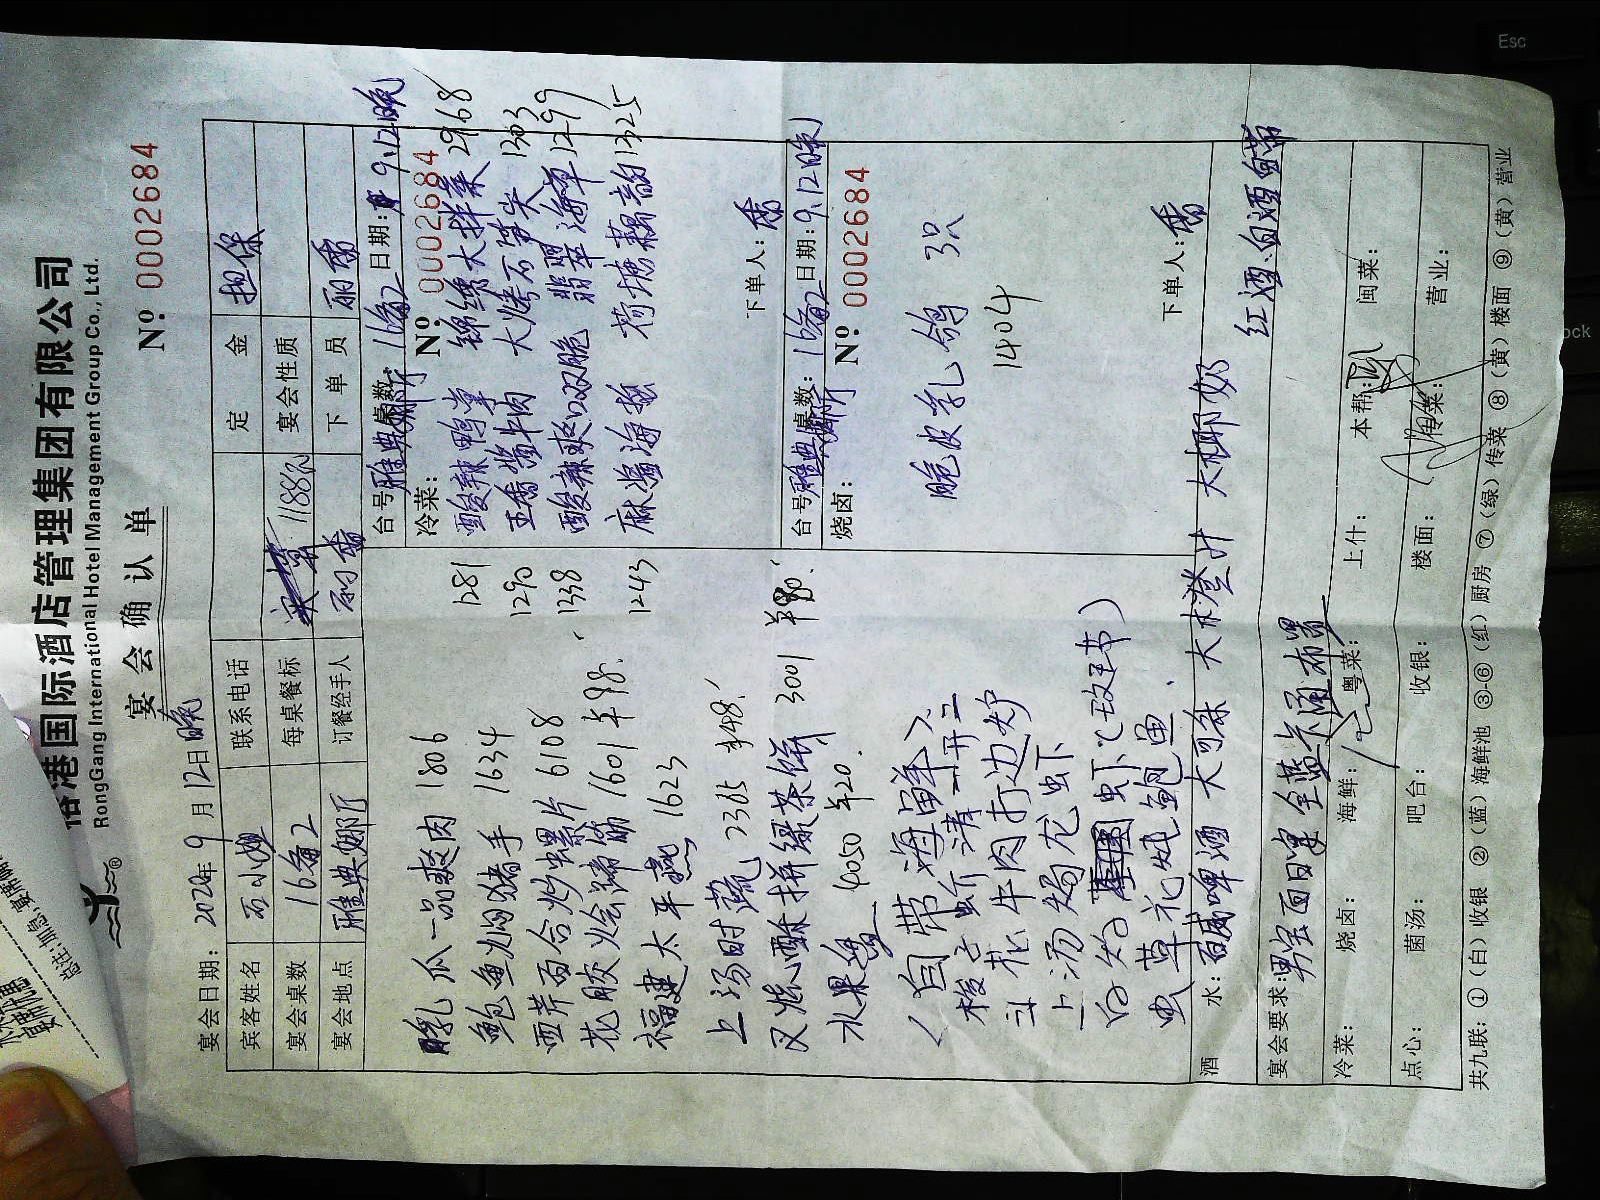 港国际酒店管理集团有限公司
RongGang International Hotel Management Group Co., Ltd.
宴会确认单
Nº: 0002684
宴会日期: 2020年9月12日晚
宾客姓名 石小姐 联系电话 定金 担保
宴会桌数 16备2 每桌餐标 1188 宴会性质
宴会地点 雅典娜厅 订餐经手人 丽香 下单员 丽香
乳瓜一品爽肉 1806
鲍鱼焖猪手 1634
西芹百合炒螺片 6108
花胶烩蹄筋 1601 ¥98.
福建太平燕 1623
上汤时蔬 2365 ¥48.
叉烧酥拼绿茶饼 3001 ¥80.
水果盘 4050 ¥20.
〈自带海鲜〉
梭子蟹清
牛肉打边炉
上汤焗龙虾
白灼虾(改李节)
虫草花炖鲍鱼
台号桌数: 16备2 日期: 9.12晚
雅典娜厅
冷菜: Nº 0002684
酸辣鸭掌 1281 锦绣大拌菜 2968
五香酱牛肉 1290 大烤石笋尖 1303
酸辣爽口双脆 1338 翡翠海草 1299
麻酱海蜇 1243 荷塘藕韵 1325
下单人: 香
台号桌数: 16备2 日期: 9.12晚
雅典娜厅
烧卤: Nº 0002684
脆皮乳鸽 3只
1404
下单人: 香
酒水: 百威啤酒 大可乐 大橙汁 大椰奶 红酒.白酒自带
宴会要求: 男宝百日宴 全蓝卡通布置
冷菜: 烧卤: 海鲜: 粤菜: 上什: 本帮: 闽菜:
点心: 菌汤: 吧台: 收银: 楼面: 传菜: 营业:
共九联: ①(白)收银 ②(蓝)海鲜池 ③-⑥(红)厨房 ⑦(绿)传菜 ⑧(黄)楼面 ⑨(黄)营业
Esc
ock